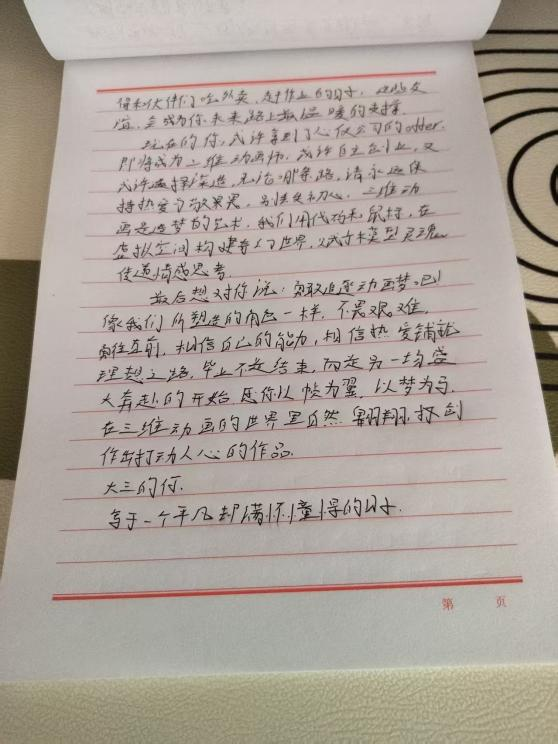 得和伙伴们吃外卖，赶作业的日子，这些友
谊，会成为你未来路上最温暖的支撑。
现在的你，或许拿到了心仪公司的offer.
即将成为三维动画师，或许自主创业，又
或许选择深造，无论哪条路，请永远保
持热爱与敬畏，别忘初心，三维动
画是造梦的艺术，我们用代码和鼠标，在
虚拟空间构建世界，赋予模型灵魂
传递情感思考
最后想对你说：勇敢追逐动画梦吧
像我们所塑造的角色一样，不畏艰难，
勇往直前，相信自己的能力，相信热爱铺就
理想之路，毕业不是结束，而是另一场盛
大奔赴的开始 愿你以帧为翼，以梦为马，
在三维动画的世界里自然翱翔，
作出打动人心的作品
大三的何.
写于一个平凡却满怀憧憬的日子.
第 页